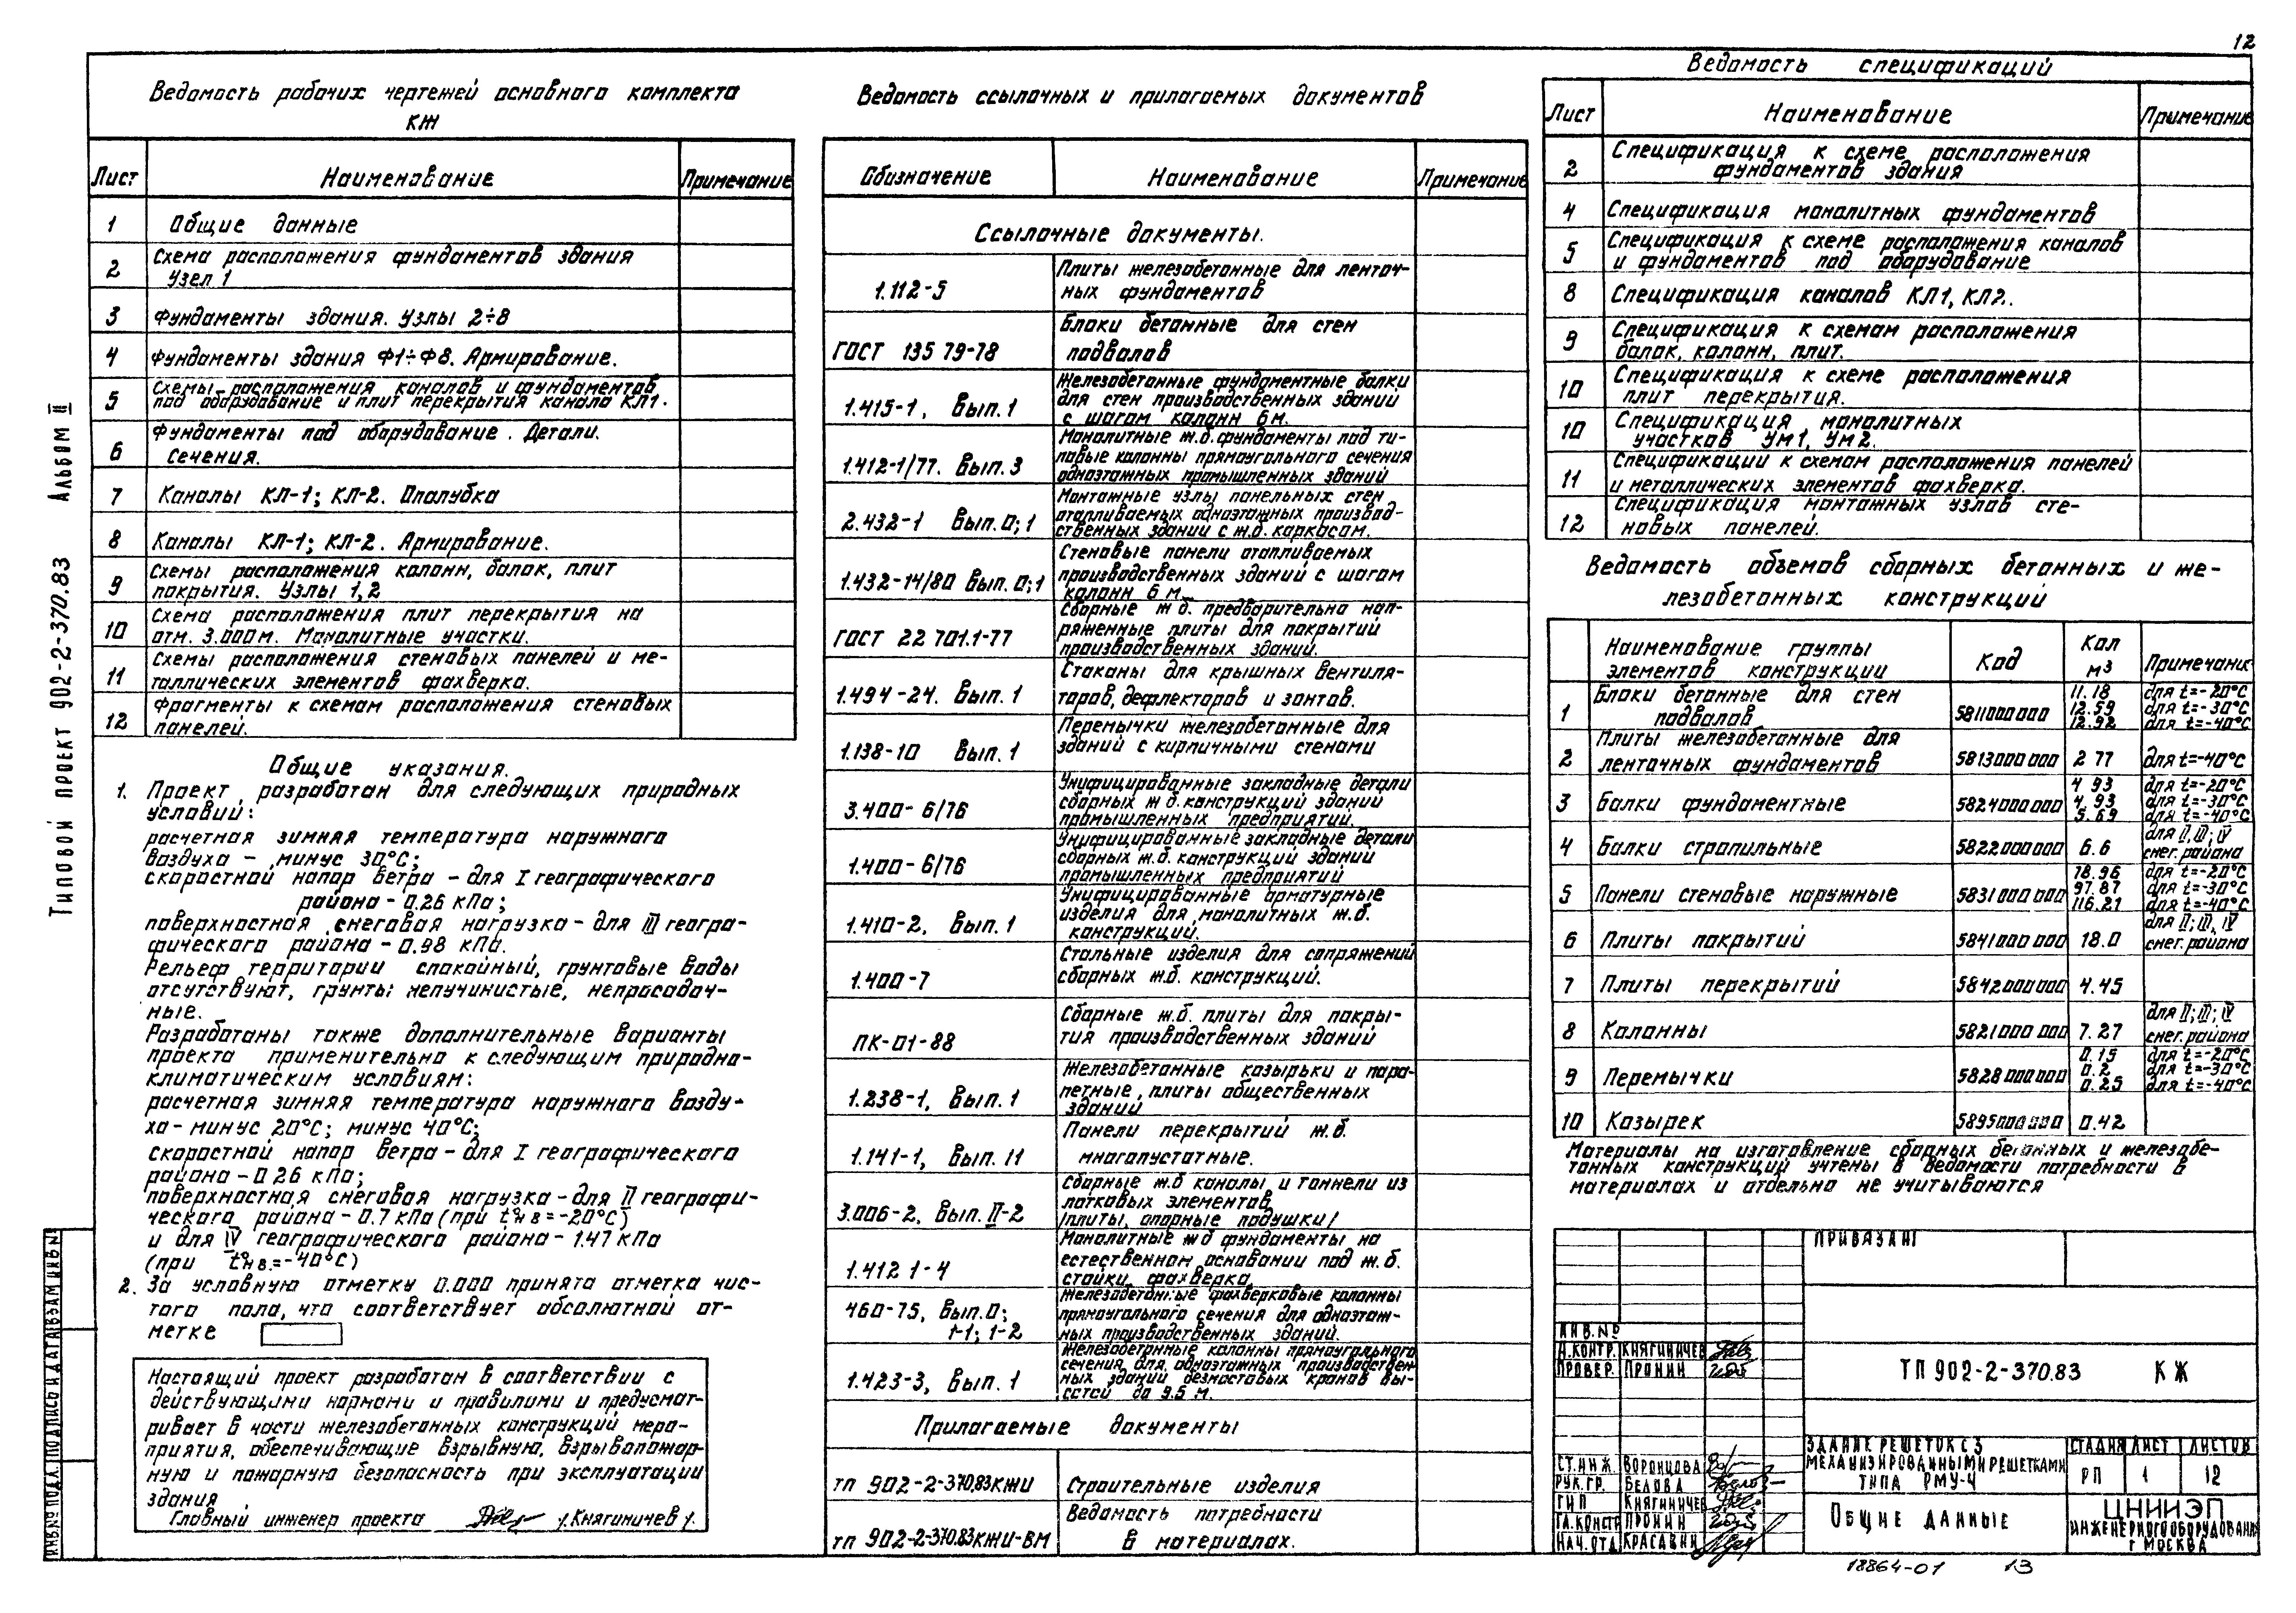 12
Ведомость рабочих чертежей основного комплекта
КЖ
Лист Наименование Примечание
1 Общие данные
2 Схема расположения фундаментов здания
Узел 1
3 Фундаменты здания. Узлы 2÷8
4 Фундаменты здания Ф1÷Ф8. Армирование.
5 Схемы расположения каналов и фундаментов
под оборудование и плит перекрытия канала КЛ1.
6 Фундаменты под оборудование. Детали.
Сечения.
7 Каналы КЛ-1; КЛ-2. Опалубка
8 Каналы КЛ-1; КЛ-2. Армирование.
9 Схемы расположения колонн, балок, плит
покрытия. Узлы 1,2
10 Схема расположения плит перекрытия на
отм. 3.000м. Монолитные участки.
11 Схемы расположения стеновых панелей и ме-
таллических элементов фахверка.
12 Фрагменты к схемам расположения стеновых
панелей.
Общие указания.
1. Проект разработан для следующих природных
условий:
расчетная зимняя температура наружного
воздуха - минус 30°С;
скоростной напор ветра - для I географического
района - 0.26 кПа;
поверхностная снеговая нагрузка - для III геогра-
фического района - 0.98 кПа.
Рельеф территории спокойный, грунтовые воды
отсутствуют, грунты непучинистые, непросадоч-
ные.
Разработаны также дополнительные варианты
проекта применительно к следующим природно-
климатическим условиям:
расчетная зимняя температура наружного возду-
ха - минус 20°С; минус 40°С;
скоростной напор ветра - для I географического
района - 0.26 кПа;
поверхностная снеговая нагрузка - для II географи-
ческого района - 0.7 кПа (при tнв=-20°С)
и для IV географического района - 1.47 кПа
(при tнв.=-40°С)
2. За условную отметку 0.000 принята отметка чис-
того пола, что соответствует абсолютной от-
метке
Настоящий проект разработан в соответствии с
действующими нормами и правилами и предусмат-
ривает в части железобетонных конструкций меро-
приятия, обеспечивающие взрывную, взрывопожар-
ную и пожарную безопасность при эксплуатации
здания
Главный инженер проекта /Княгиничев/.
Ведомость ссылочных и прилагаемых документов
Обозначение Наименование Примечание
Ссылочные документы.
1.112-5 Плиты железобетонные для ленточ-
ных фундаментов
ГОСТ 13579-78 Блоки бетонные для стен
подвалов
1.415-1, Вып. 1 Железобетонные фундаментные балки
для стен производственных зданий
с шагом колонн 6м.
1.412-1/77. Вып. 3 Монолитные ж.б. фундаменты под ти-
повые колонны прямоугольного сечения
одноэтажных промышленных зданий
2.432-1 Вып. 0; 1 Монтажные узлы панельных стен
отапливаемых одноэтажных производ-
ственных зданий с ж.б. каркасом.
1.432-14/80 Вып. 0; 1 Стеновые панели отапливаемых
производственных зданий с шагом
колонн 6 м.
ГОСТ 22701.1-77 Сборные ж б. предварительно нап-
ряженные плиты для покрытий
производственных зданий.
1.494-24. Вып. 1 Стаканы для крышных вентиля-
торов, дефлекторов и зонтов.
1.138-10 Вып. 1 Перемычки железобетонные для
зданий с кирпичными стенами
3.400-6/76 Унифицированные закладные детали
сборных ж б. конструкций зданий
промышленных предприятий.
1.400-6/76 Унифицированные закладные детали
сборных ж.б. конструкций зданий
промышленных предприятий
1.410-2, Вып. 1 Унифицированные арматурные
изделия для монолитных ж.б.
конструкций.
1.400-7 Стальные изделия для сопряжений
сборных ж.б. конструкций.
ПК-01-88 Сборные ж.б. плиты для покры-
тия производственных зданий
1.238-1, Вып. 1 Железобетонные козырьки и пара-
петные плиты общественных
зданий
1.141-1, Вып. 11 Панели перекрытий ж.б.
многопустотные.
3.006-2, Вып. II-2 Сборные ж.б каналы и тоннели из
лотковых элементов
/плиты, опорные подушки/
1.412 1-4 Монолитные жб фундаменты на
естественном основании под ж.б.
стойки фахверка
460-75, Вып. 0;
1-1; 1-2 Железобетонные фахверковые колонны
прямоугольного сечения для одноэтаж-
ных производственных зданий.
1.423-3, Вып. 1 Железобетонные колонны прямоугольного
сечения для одноэтажных производствен
ных зданий безмостовых кранов вы-
сотой до 9.5 м.
Прилагаемые документы
тп 902-2-370.83КЖИ Строительные изделия
тп 902-2-370.83КЖИ-ВМ Ведомость потребности
в материалах.
Ведомость спецификаций
Лист Наименование Примечание
2 Спецификация к схеме расположения
фундаментов здания
4 Спецификация монолитных фундаментов
5 Спецификация к схеме расположения каналов
и фундаментов под оборудование
8 Спецификация каналов КЛ1, КЛ2.
9 Спецификация к схемам расположения
балок, колонн, плит.
10 Спецификация к схеме расположения
плит перекрытия.
10 Спецификация монолитных
участков УМ1, УМ2.
11 Спецификации к схемам расположения панелей
и металлических элементов фахверка.
12 Спецификация монтажных узлов сте-
новых панелей.
Ведомость объемов сборных бетонных и же-
лезобетонных конструкций
Наименование группы
элементов конструкции Код Кол
м3 Примечание
1 Блоки бетонные для стен
подвалов 5811000000 11.18 для t=-20°С
12.59 для t=-30°С
12.92 для t=-40°С
2 Плиты железобетонные для
ленточных фундаментов 5813000000 2 77 для t=-40°С
3 Балки фундаментные 5824000000 4 93 для t=-20°С
4.93 для t=-30°С
5.69 для t=-40°С
4 Балки стропильные 5822000000 6.6 для II, III; IV
снег. района
5 Панели стеновые наружные 5831000000 78.96 для t=-20°С
97.87 для t=-30°С
116.21 для t=-40°С
6 Плиты покрытий 5841000000 18.0 для II; III, IV
снег. района
7 Плиты перекрытий 5842000000 4.45
8 Колонны 5821000000 7.27 для II; III; IV
снег. района
9 Перемычки 5828000000 0.15 для t=-20°С
0.2 для t=-30°С
0.25 для t=-40°С
10 Козырек 5895000000 0.42
Материалы на изготовление сборных бетонных и железобе-
тонных конструкций учтены в ведомости потребности в
материалах и отдельно не учитываются
ПРИВЯЗАН
ИНВ. №
Н.КОНТР. КНЯГИНИЧЕВ
ПРОВЕР. ПРОНИН
ТП 902-2-370.83 КЖ
СТ.ИНЖ. ВОРОНЦОВА
РУК.ГР. БЕЛОВА
ГИП КНЯГИНИЧЕВ
ГЛ.КОНСТР ПРОНИН
НАЧ.ОТД КРАСАВИН
ЗДАНИЕ РЕШЕТОК С 3
МЕХАНИЗИРОВАННЫМИ РЕШЕТКАМИ
ТИПА РМУ-4
СТАДИЯ ЛИСТ ЛИСТОВ
РП 1 12
ОБЩИЕ ДАННЫЕ
ЦНИИЭП
ИНЖЕНЕРНОГО ОБОРУДОВАНИЯ
Г МОСКВА
18864-01 13
Типовой проект 902-2-370.83 Альбом II
ИНВ.№ ПОДЛ. ПОДПИСЬ И ДАТА ВЗАМ ИНВ.№